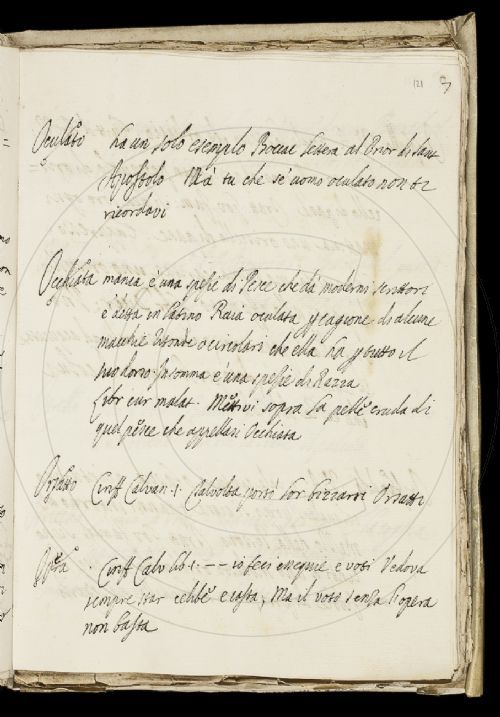 121
Oculato ha un solo esempio Boccac lettera al Prior di Sant
Apostolo Mà tu che se' uomo oculato non ti
ricordavi
Occhiata manca é una spezie di Pesce che dà moderni scrittori
e detta in latino Raia oculata p cagione di alcune
macchie ritonde o circolari che ella ha p tutto il
suo dorso. Insomma é una spezie di Razza
Libr cur malat. Mettivi sopra la pelle cruda di
quel pesce che appellasi Occhiata
Orsatto Ciriff Calvan. 1. Calvolta questi lor bizzarri Orsatti
Opera Ciriff Calv lib. 1. - - io feci essequie e voti Vedova
sempre star celibe e casta, Ma il voto senza l'opera
non basta